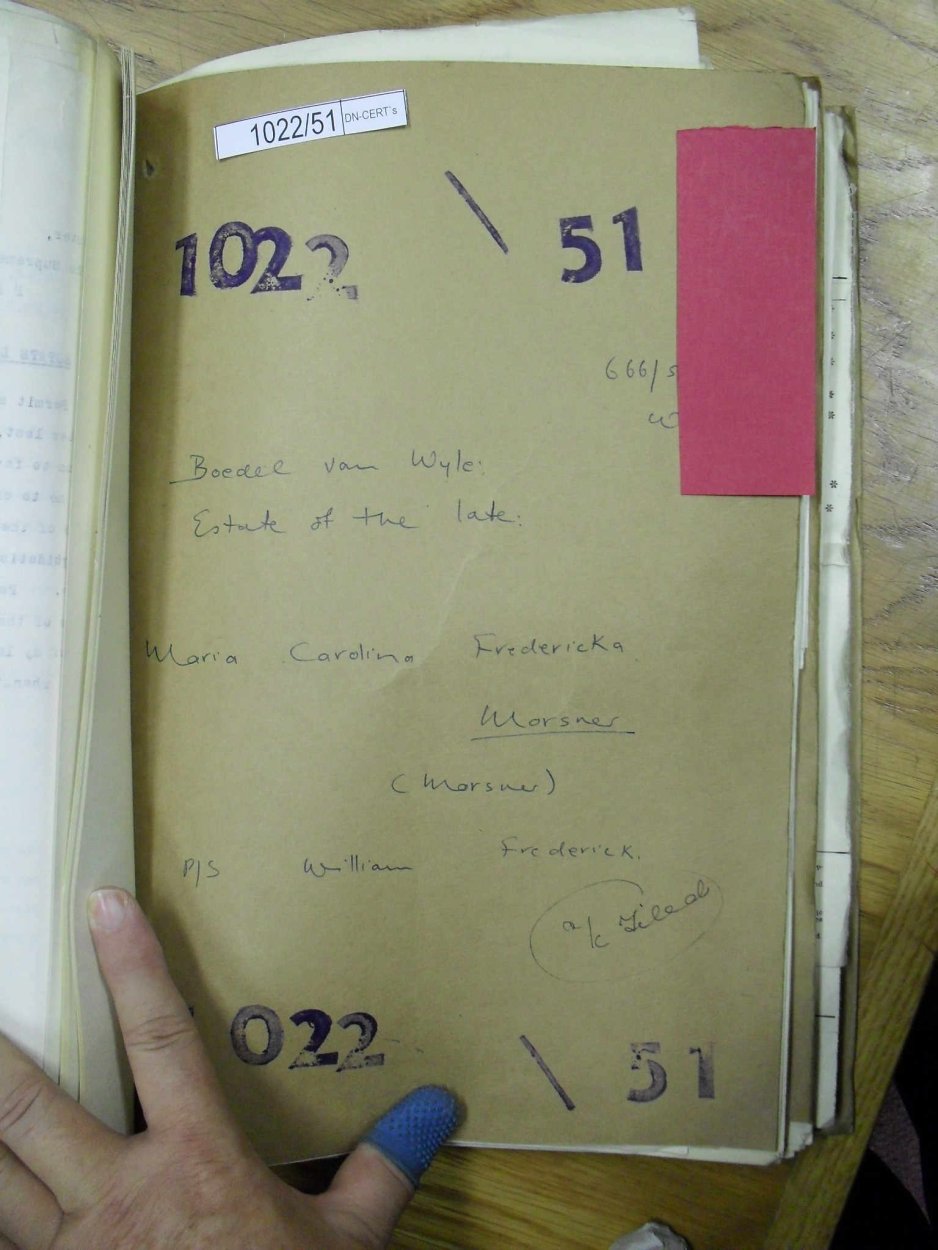 1022/51 DN-CERT's
1022 \ 51
666/5
w
Boedel van Wyle:
Estate of the late:
Maria Carolina Fredericka
Morsner
(Morsner)
P/S William Frederick.
a/c Filed
022 \ 51